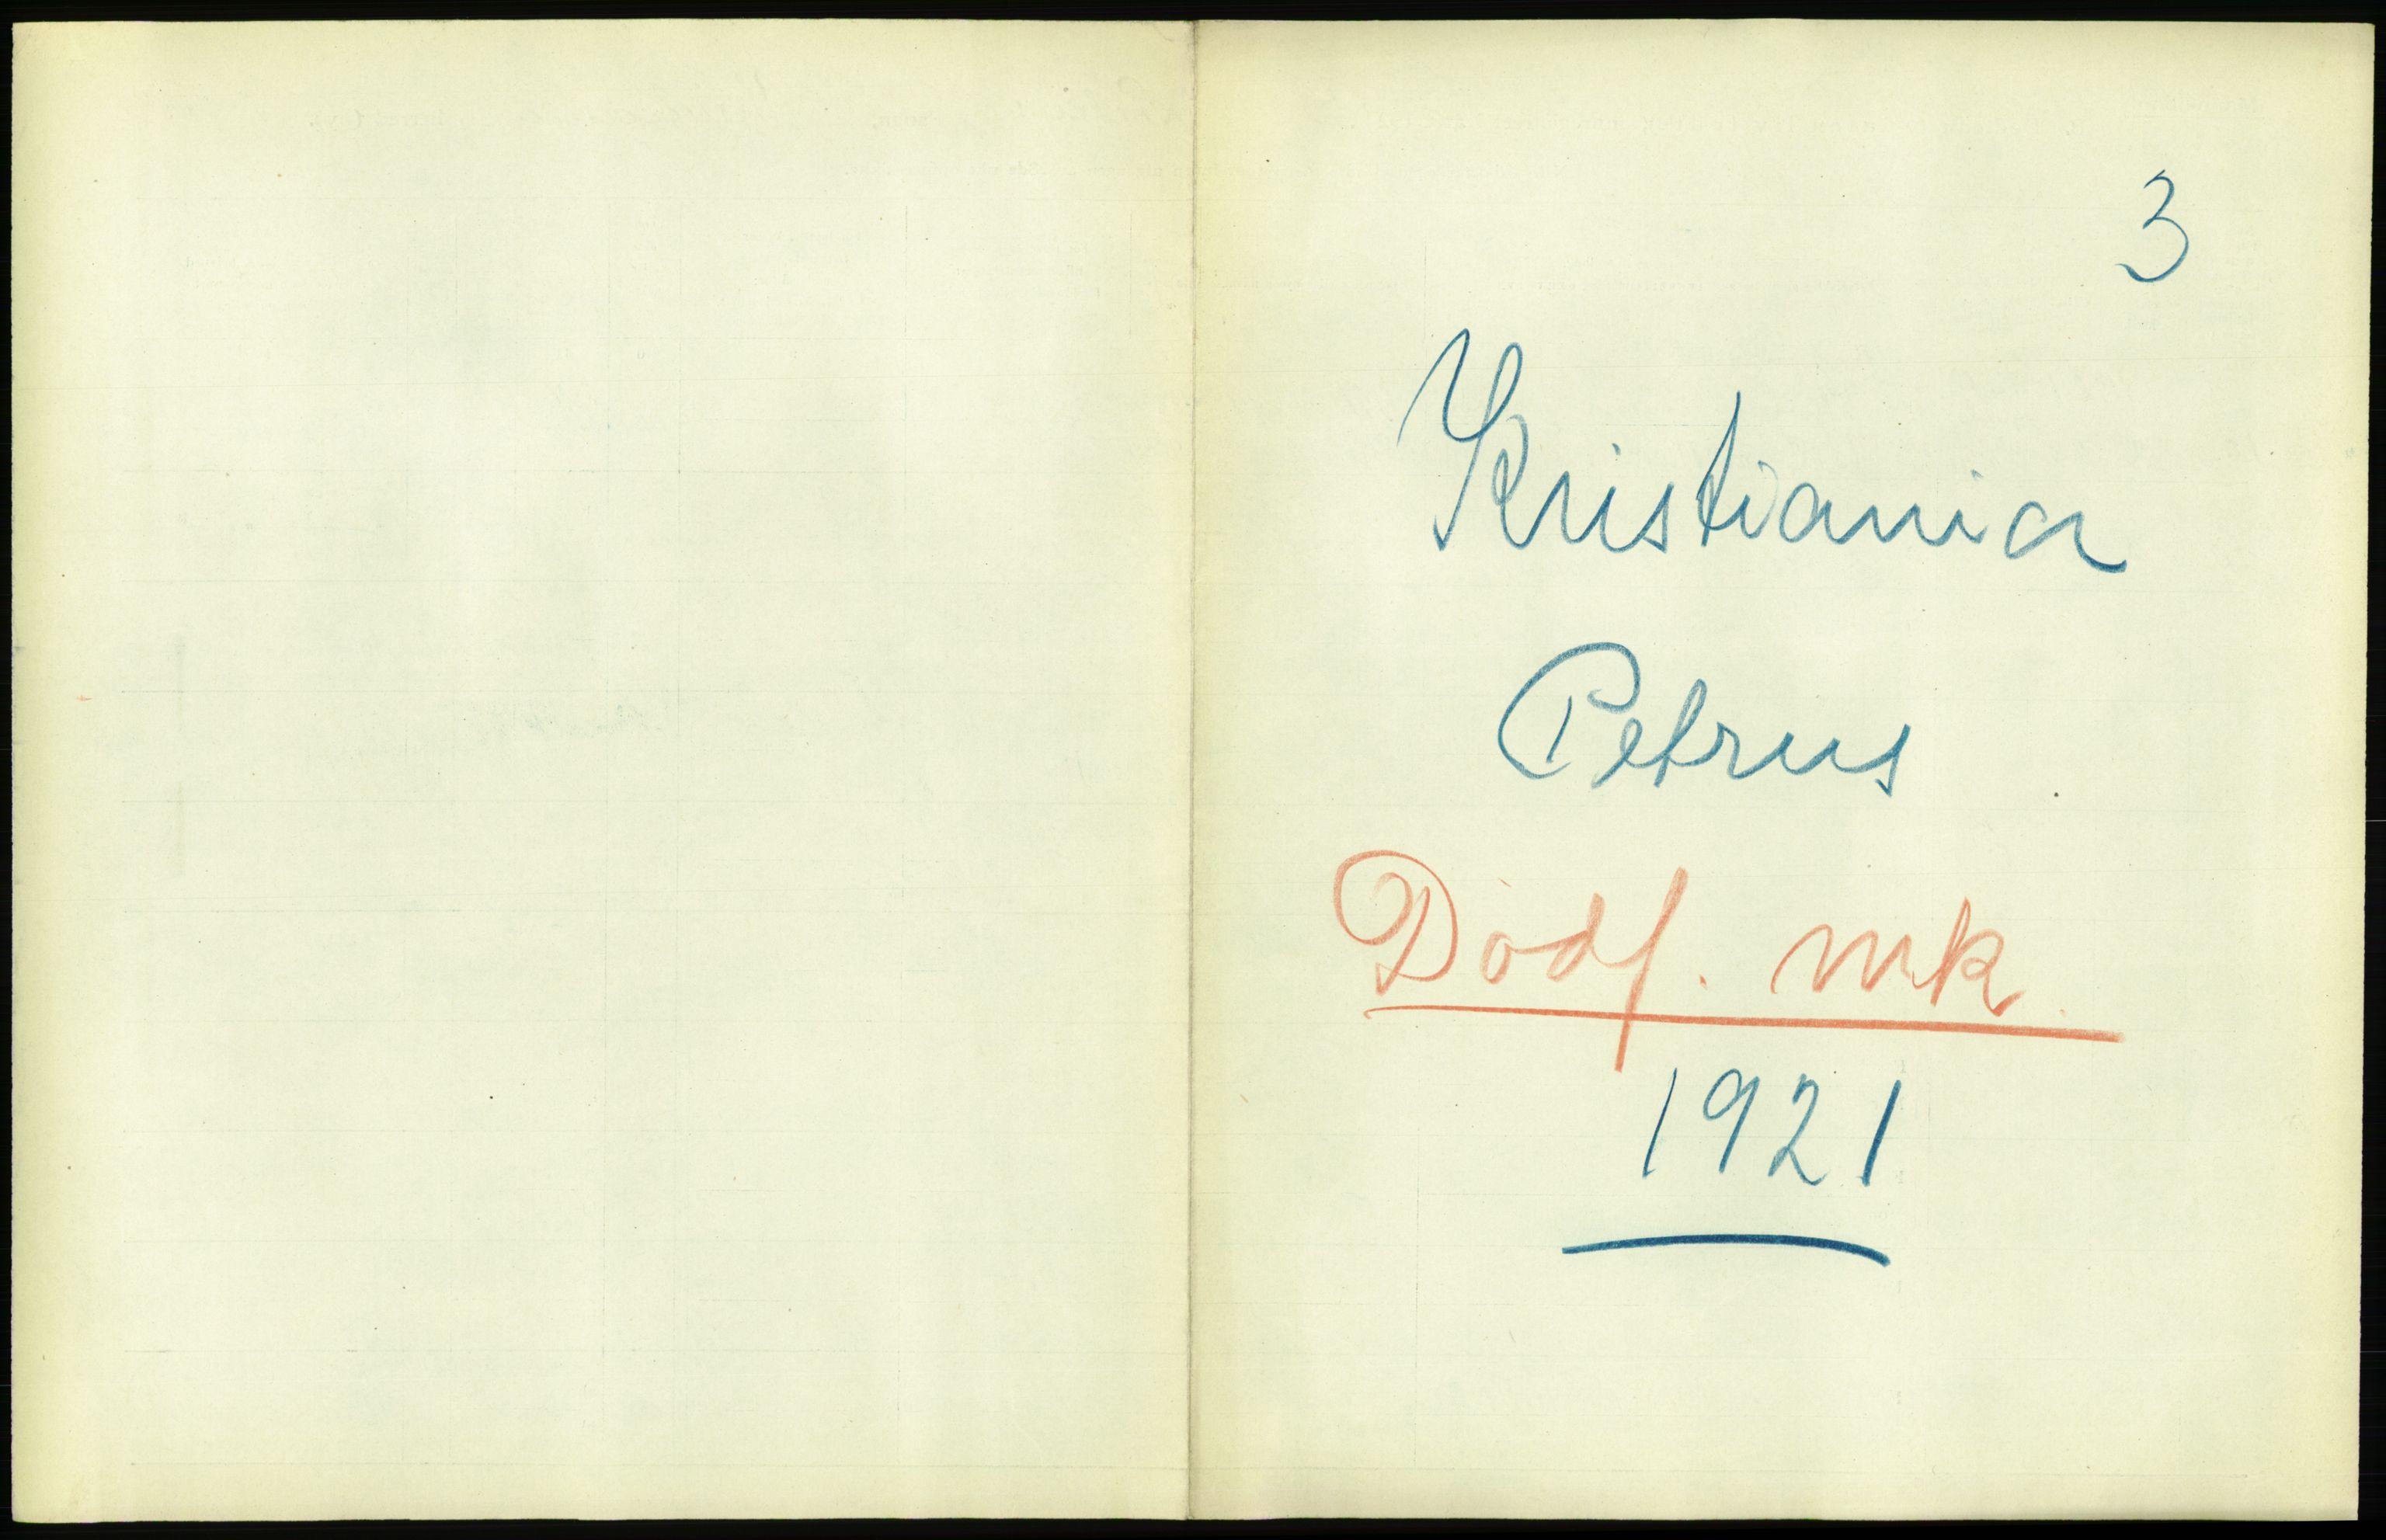 3
Kristiania
Petrus
Dödf. mk.
1921